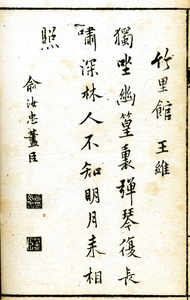 竹里館 王維
獨坐幽篁裏彈琴復長
嘯深林人不知明月来相
照
俞汝忠藎臣